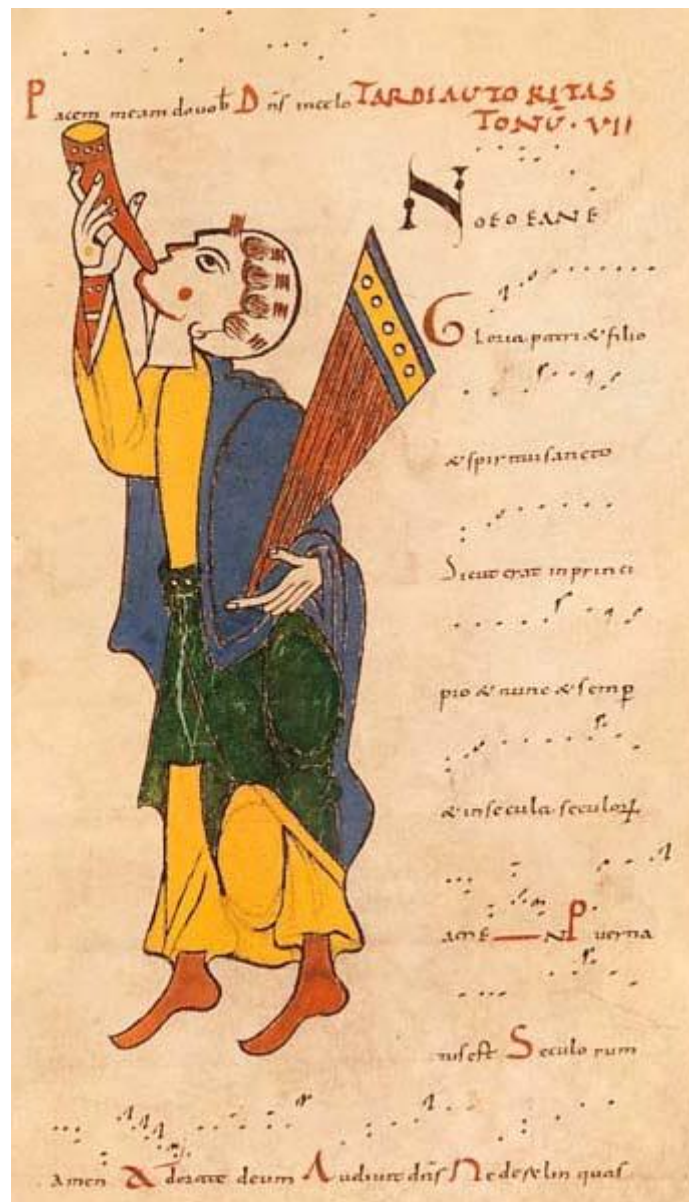 Pacem meam do vob̄ Dn̄s in celo TARDI AUTORITAS
TONŪ · VII
NOEOEANE
Gloria patri & filio
& spiritui sancto
Sicut erat in princi
pio & nunc & semp̄
& in secula seculoꝝ
amE N Puerna
tus est Seculorum
amen Adorate deum Audivit dn̄s